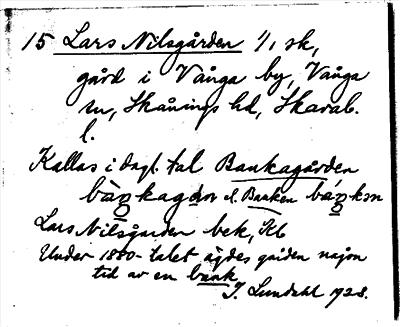 15 Lars Nilsgården 1/1 sk,
gård i Vånga by, Vånga
sn, Skånings hd, Skarab.
l.
Kallas i dagl. tal Bankagården
el. Banken
Lars Nilsgården bek, Kb
Under 1800-talet ägdes gården någon
tid av en bank
J. Lundahl 1928.